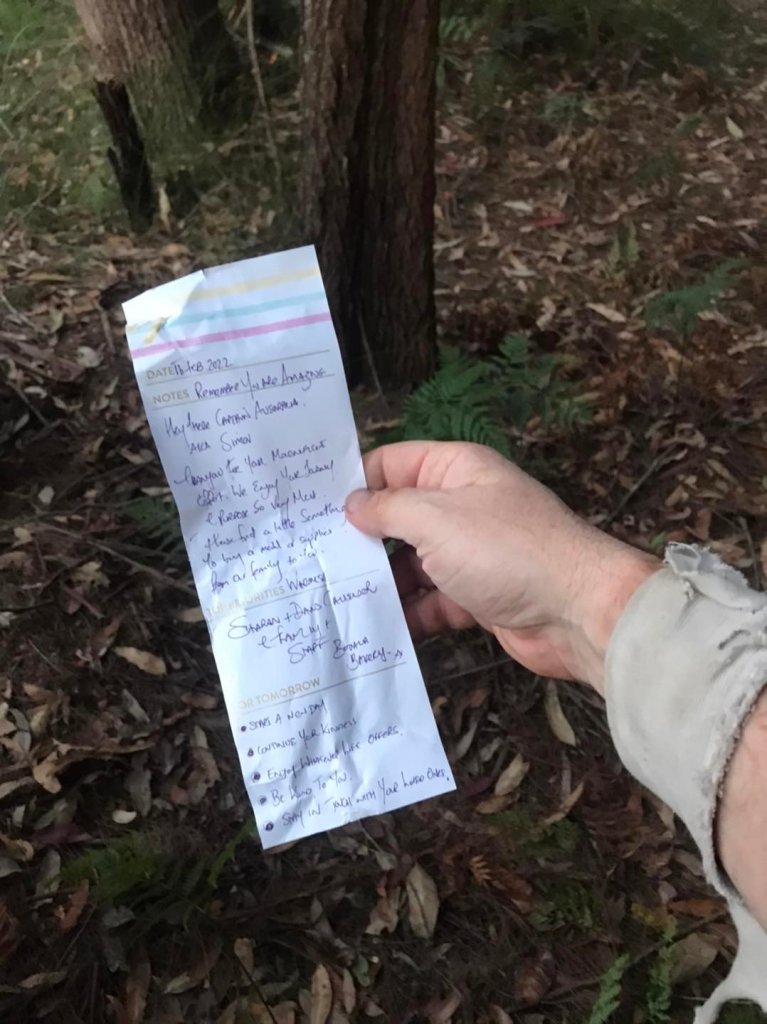 DATE 15 FEB 2022
NOTES Remember You Are Amazing
Hey there Captain Australia
AKA Simon
Thankyou for Your Magnificent
effort. We Enjoy Your Journey
& Purpose So Very Much.
Please find a little Something
to buy a meal or supplies
from our family to you.
PRIORITIES Warmest
Sharan + David
& Family +
Staff Bodalla
Bakery. x
FOR TOMORROW
• START A NEW DAY
• CONTINUE YOUR KINDNESS
• ENJOY WHATEVER LIFE OFFERS.
• BE KIND TO YOU.
• STAY IN TOUCH WITH YOUR LOVED ONES.